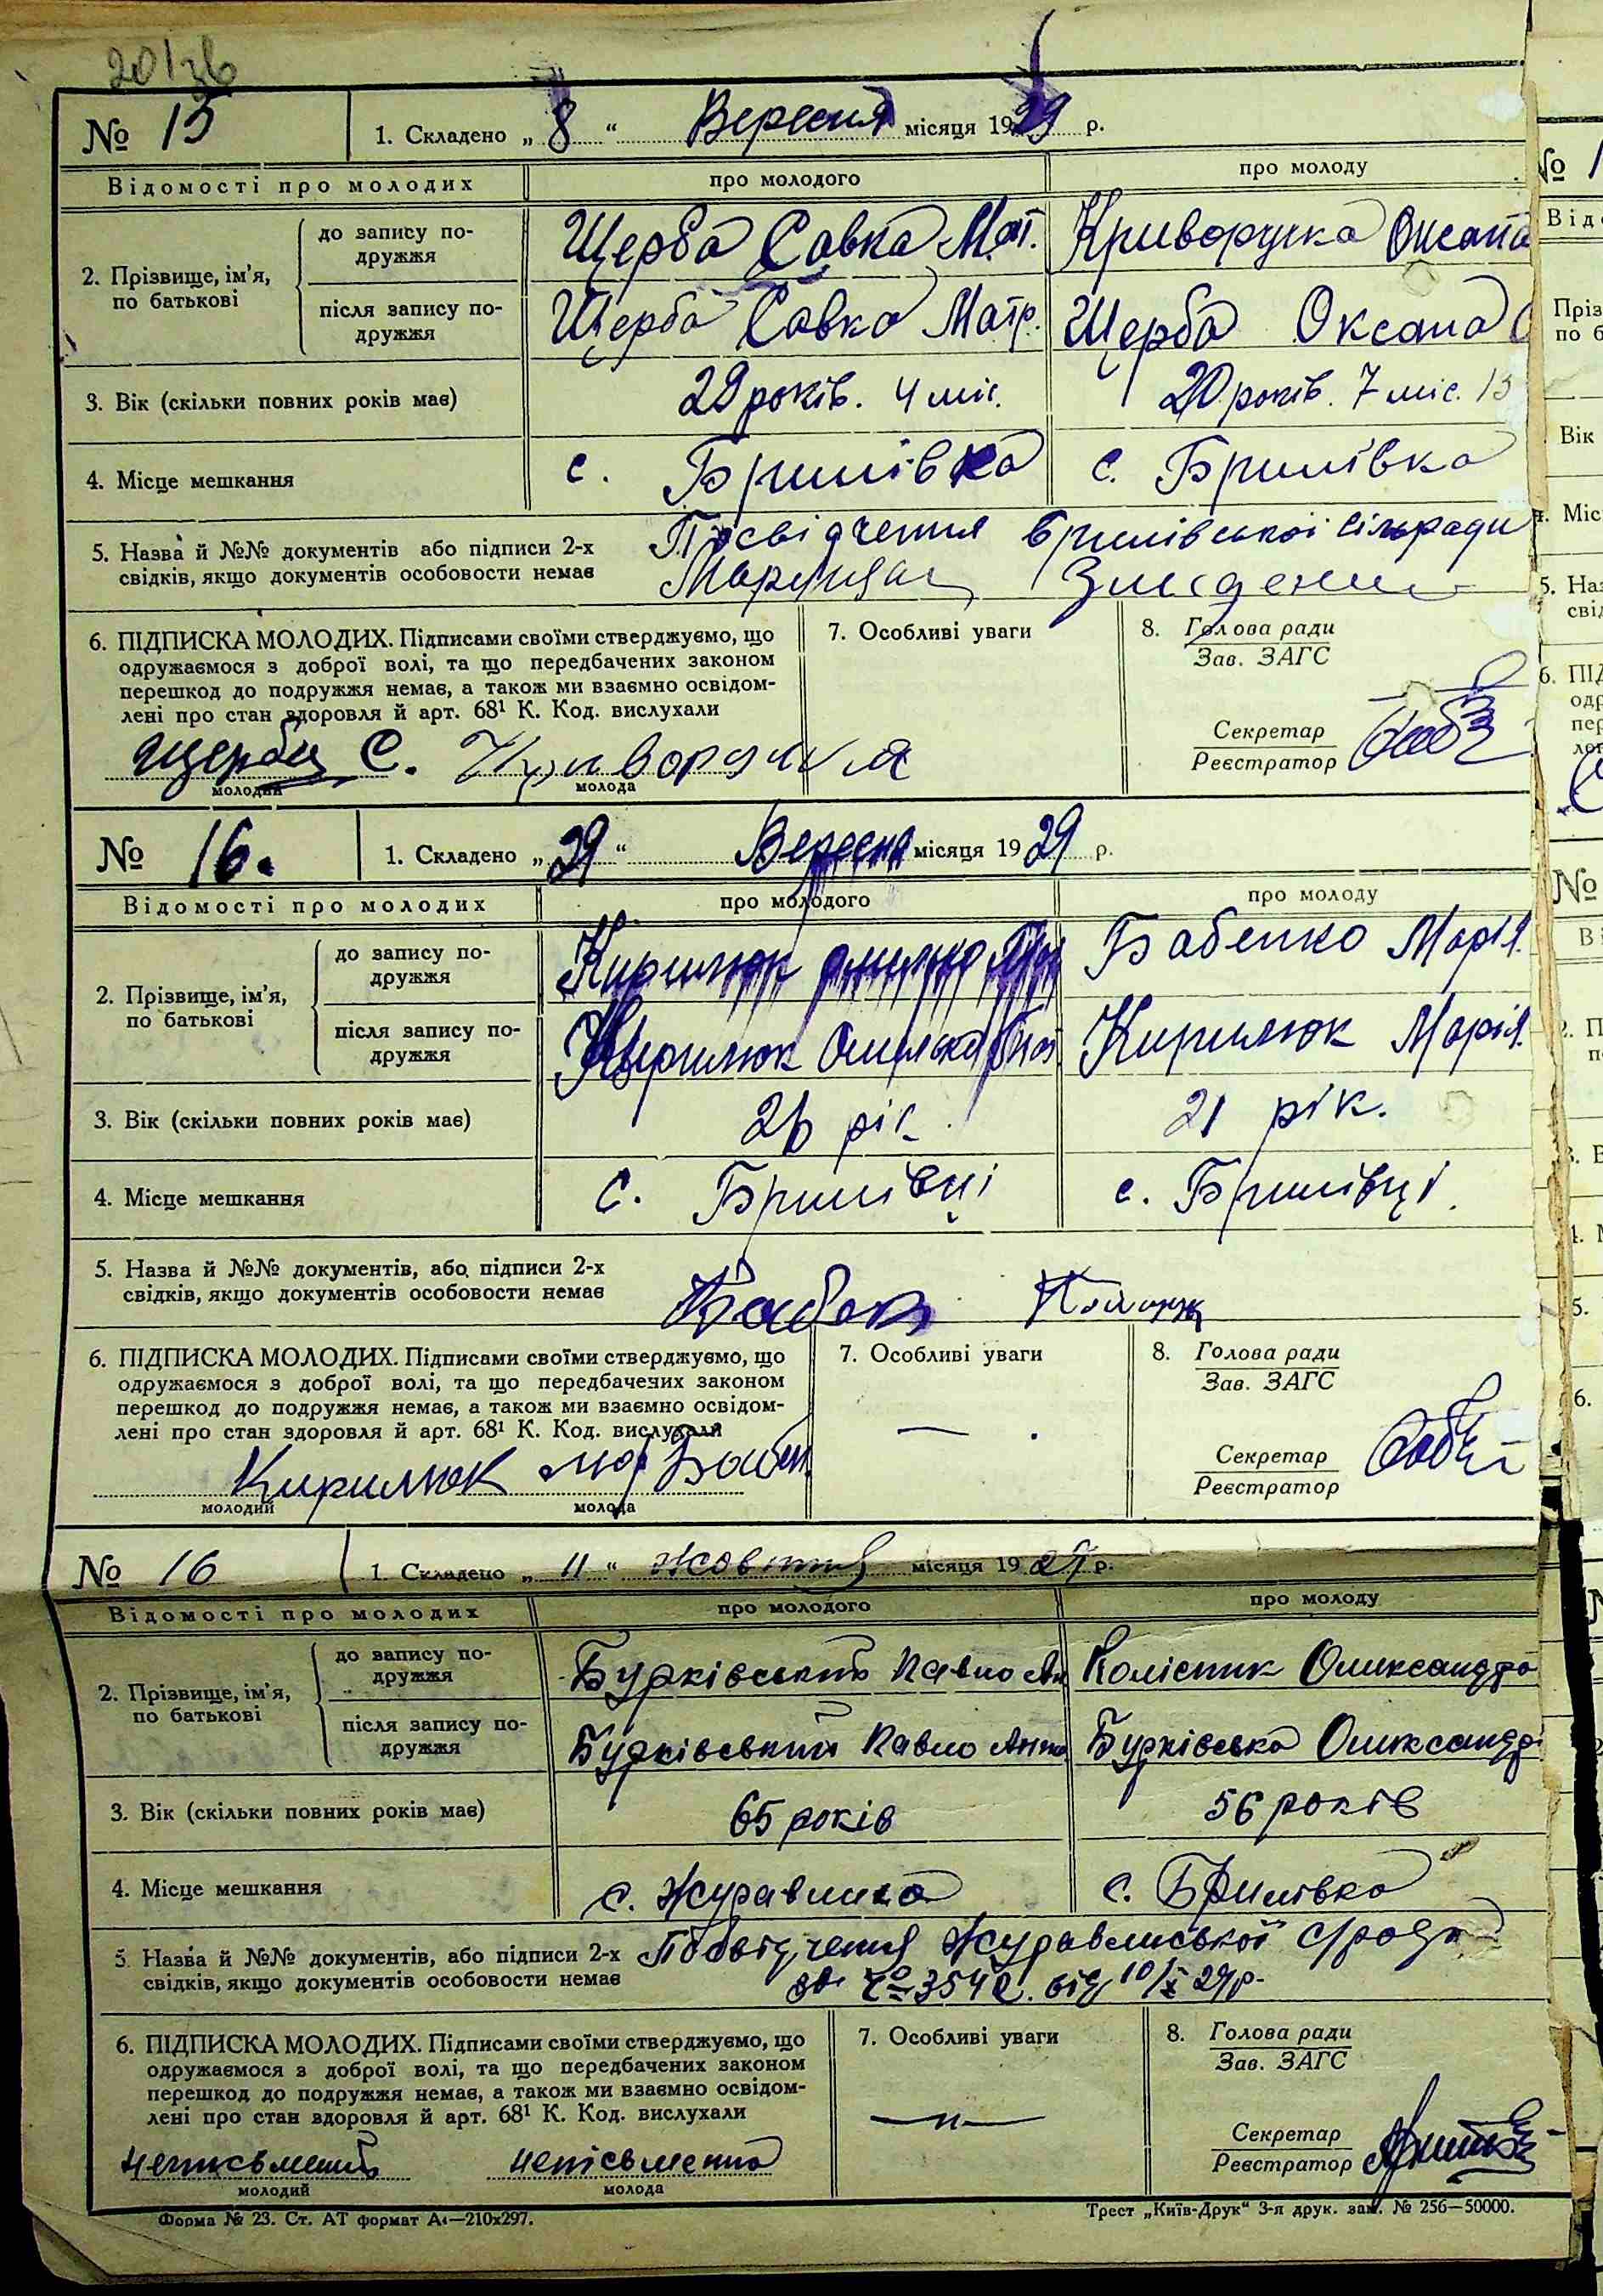 20/36
№ 15 1. Складено „ 8 “ Вересня місяця 1929 р.
Відомості про молодих про молодого про молоду
2. Прізвище, ім'я, по батькові
до запису подружжя Щерба Савка Мат. Криворучка Оксана
після запису подружжя Щерба Савка Матр. Щерба Оксана
3. Вік (скільки повних років має) 29 років. 4 міс. 20 років. 7 міс. 13
4. Місце мешкання с. Брилівка с. Брилівка
5. Назва й №№ документів або підписи 2-х Посвідчення Брилівської сільради
свідків, якщо документів особовости немає
6. ПІДПИСКА МОЛОДИХ. Підписами своїми стверджуємо, що 7. Особливі уваги 8. Голова ради
одружаємося з доброї волі, та що передбачених законом Зав. ЗАГС
перешкод до подружжя немає, а також ми взаємно освідом-
лені про стан здоровля й арт. 68¹ К. Код. вислухали Секретар
Щерба С. Криворучка Реєстратор
молодий молода
№ 16. 1. Складено „ 29 “ Вересня місяця 1929 р.
Відомості про молодих про молодого про молоду
2. Прізвище, ім'я, по батькові
до запису подружжя Кирилюк Омелько Бабенко Марія.
після запису подружжя Кирилюк Омелько Кирилюк Марія.
3. Вік (скільки повних років має) 26 рік 21 рік.
4. Місце мешкання с. Брилівці с. Брилівці.
5. Назва й №№ документів, або підписи 2-х
свідків, якщо документів особовости немає
6. ПІДПИСКА МОЛОДИХ. Підписами своїми стверджуємо, що 7. Особливі уваги 8. Голова ради
одружаємося з доброї волі, та що передбачених законом Зав. ЗАГС
перешкод до подружжя немає, а також ми взаємно освідом-
лені про стан здоровля й арт. 68¹ К. Код. вислухали Секретар
Кирилюк Реєстратор
молодий молода
№ 16 1. Складено „ 11 “ жовтня місяця 1929 р.
Відомості про молодих про молодого про молоду
2. Прізвище, ім'я, по батькові
до запису подружжя Бурківський Павло Ан Колісник Олександра
після запису подружжя Бурківський Павло Анто Бурківська Олександр
3. Вік (скільки повних років має) 65 років 56 років
4. Місце мешкання с. Журавлика с. Брилівка
5. Назва й №№ документів, або підписи 2-х Посвідчення Журавлиської с/ради
свідків, якщо документів особовости немає за № 3542. від 10/X 29 р.
6. ПІДПИСКА МОЛОДИХ. Підписами своїми стверджуємо, що 7. Особливі уваги 8. Голова ради
одружаємося з доброї волі, та що передбачених законом Зав. ЗАГС
перешкод до подружжя немає, а також ми взаємно освідом- —"—
лені про стан здоровля й арт. 68¹ К. Код. вислухали Секретар
неписьменний неписьменна Реєстратор
молодий молода
Форма № 23. Ст. АТ формат А₄—210х297. Трест „Київ-Друк“ 3-я друк. зам. № 256—50000.